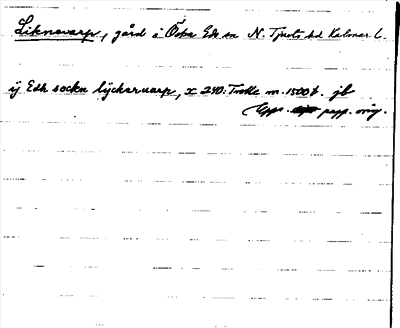 Liknevarp, gård i Östra Eds sn N. Tjusts hd Kalmar l.
ij Edh sockn lýckaruarp, x 240: Trolle m. 1500 t. jb
Kopp. papp. orig.